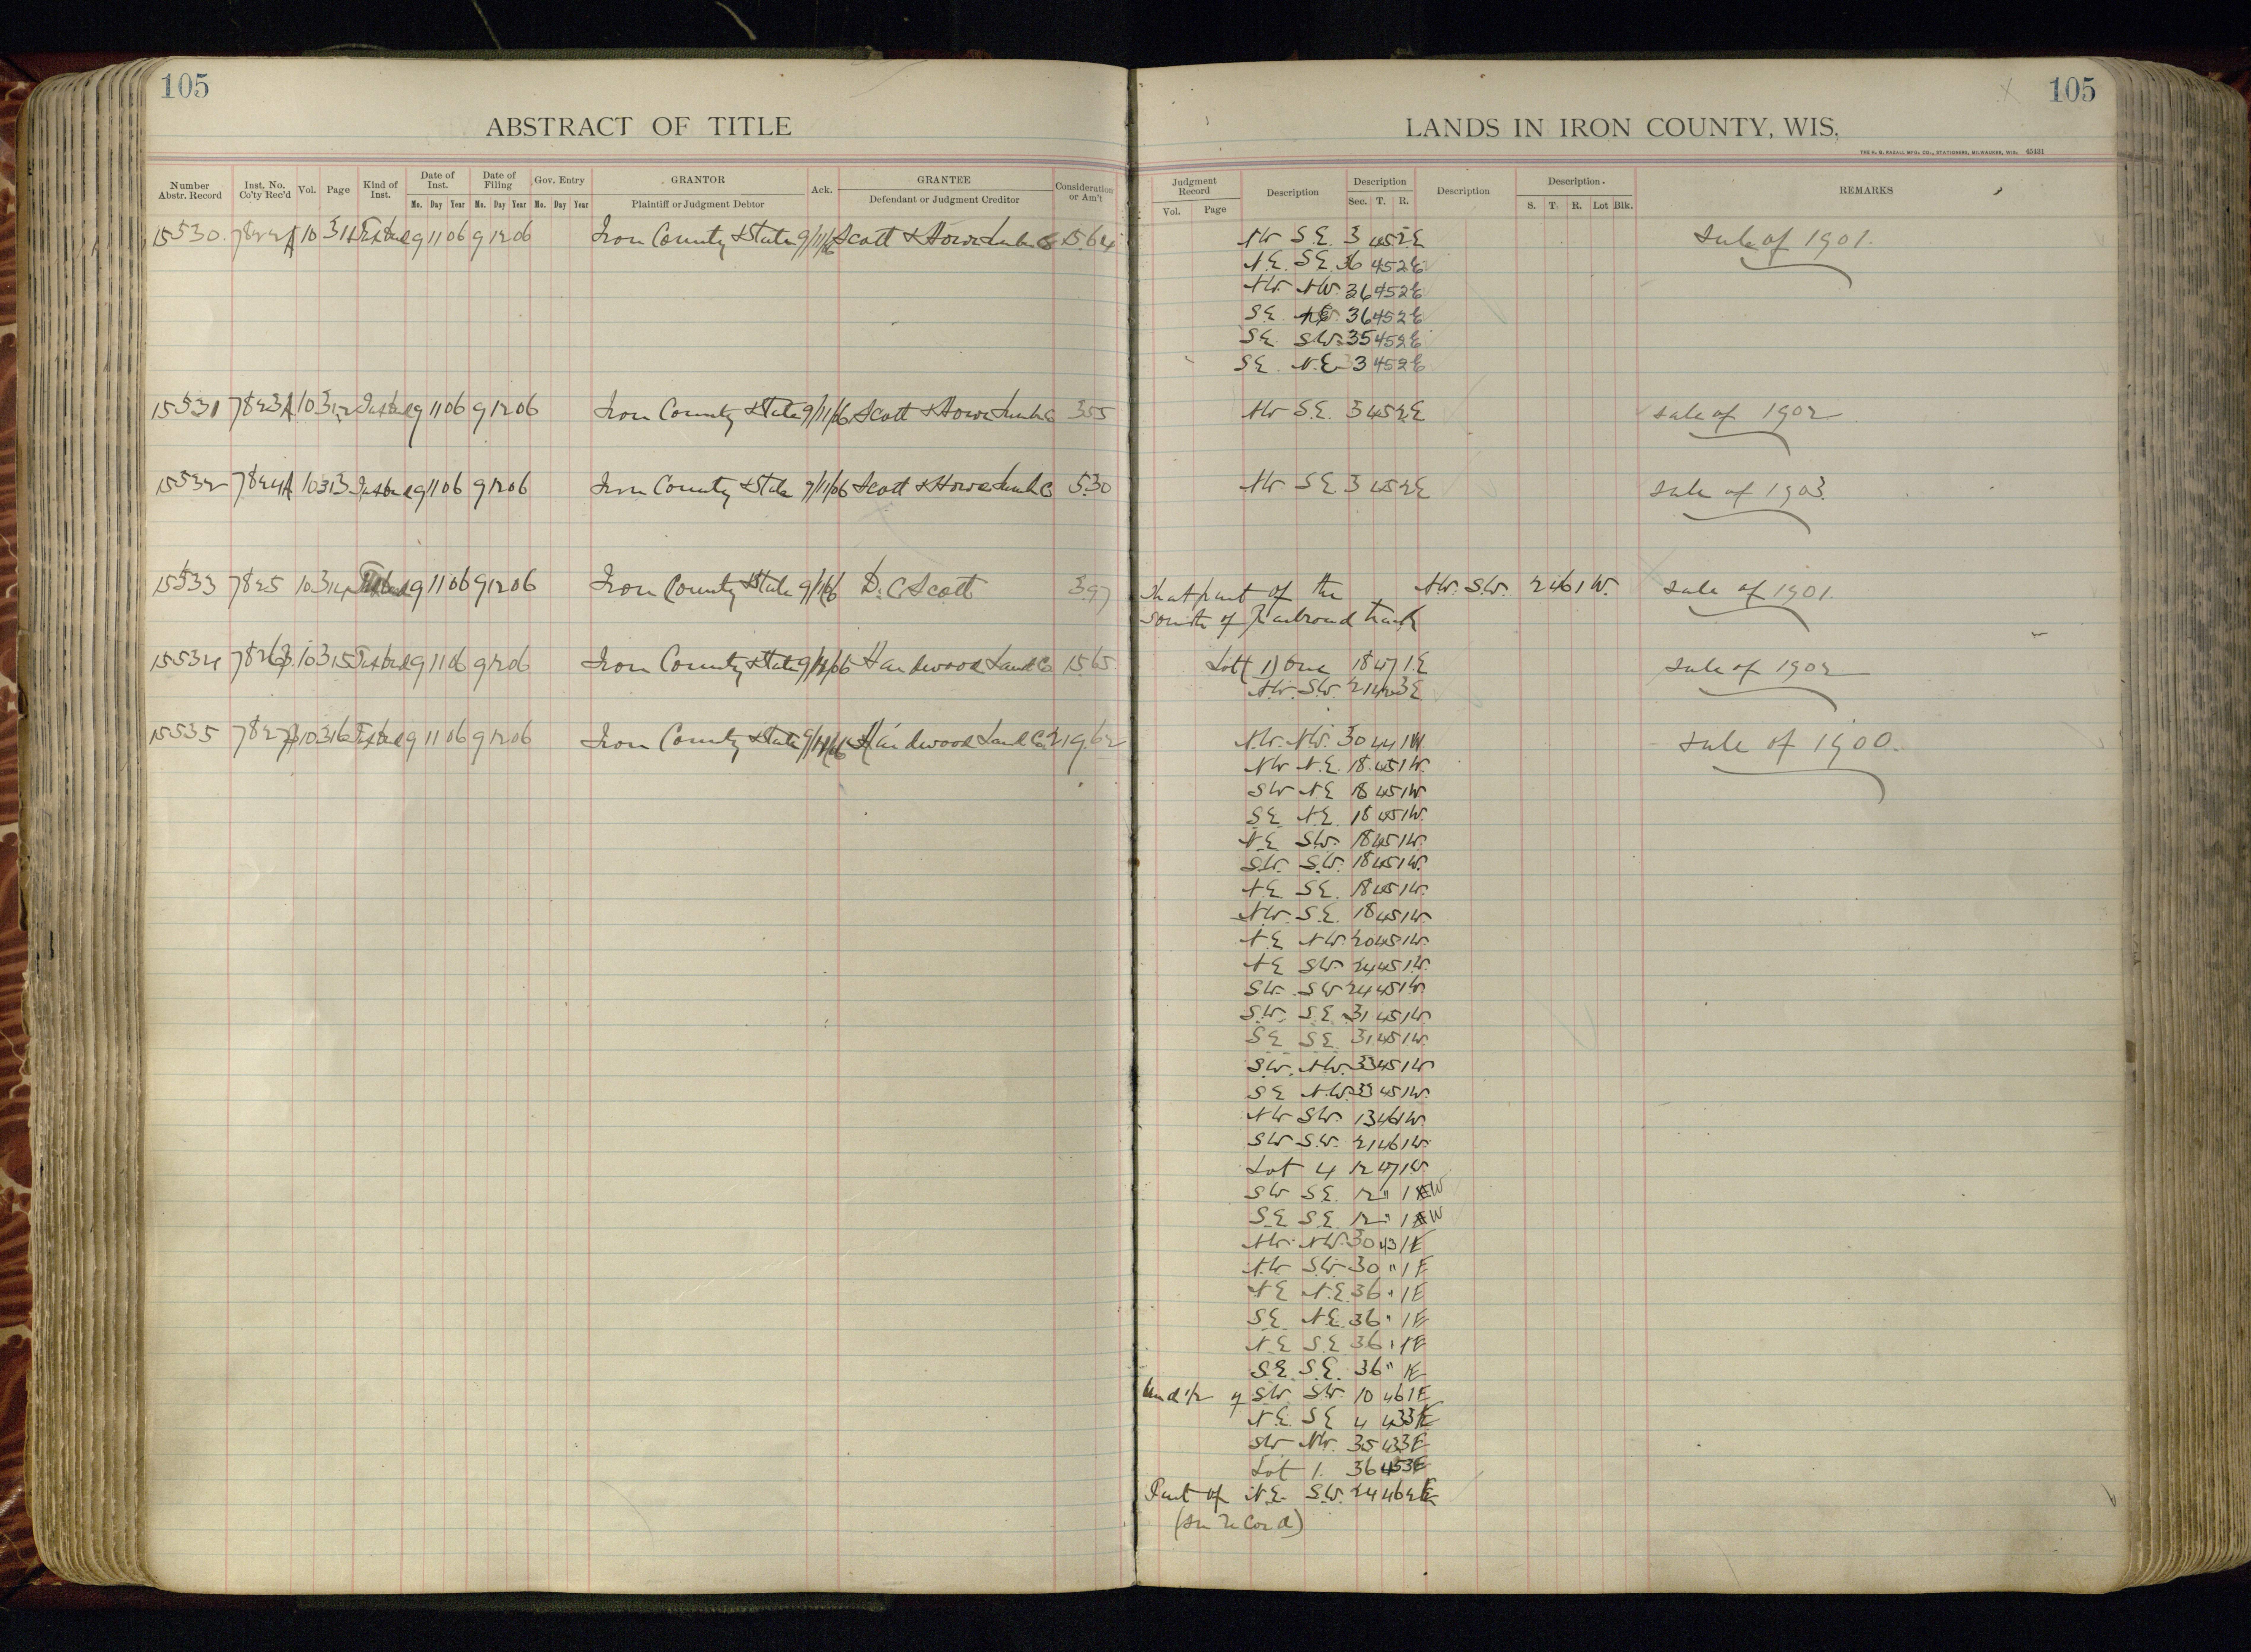 105
ABSTRACT OF TITLE
Number Abstr. Record | Inst. No. Co'ty Rec'd | Vol. | Page | Kind of Inst. | Date of Inst. Mo. Day Year | Date of Filing Mo. Day Year | Gov. Entry Mo. Day Year | GRANTOR Plaintiff or Judgment Debtor | Ack. | GRANTEE Defendant or Judgment Creditor | Consideration or Am't
15530 7822A 10 311 Tax Deed 9 11 06 9 12 06 Iron County & State 9/11/06 Scott & Howe Lumb Co 15.64
15531 7823A 10 312 Tax Deed 9 11 06 9 12 06 Iron County & State 9/11/06 Scott & Howe Lumb Co 3.55
15532 7824A 10 313 Tax Deed 9 11 06 9 12 06 Iron County & State 9/11/06 Scott & Howe Lumb Co 5.30
15533 7825 10 314 Tax Deed 9 11 06 9 12 06 Iron County & State 9/11/06 D. C. Scott 3.97
15534 7826 10 315 Tax Deed 9 11 06 9 12 06 Iron County & State 9/11/06 Hardwood Land Co 15.65
15535 7827 10 316 Tax Deed 9 11 06 9 12 06 Iron County & State 9/11/06 Hardwood Land Co 219.62
105
LANDS IN IRON COUNTY, WIS.
THE H. G. RAZALL MFG. CO., STATIONERS, MILWAUKEE, WIS. 45431
Judgment Record Vol. Page | Description | Description Sec. T. R. | Description | Description. S. T. R. Lot Blk. | REMARKS
NW S.E. 3 45 2E sale of 1901.
N.E. S.E. 36 45 2E
NW. NW. 36 45 2E
S.E. 36 45 2E
SE SW. 35 45 2E
SE N.E. 3 45 2E
NW S.E. 3 45 2E sale of 1902
NW S.E. 3 45 2E sale of 1903.
That part of the NW. S.W. 2 46 1W. sale of 1901.
South of Railroad track
Lot (1) One 18 47 1E sale of 1902
N.W. S.W. 21 42 3E
N.W. NW. 30 44 1W sale of 1900.
NW N.E. 18 45 1W.
SW NE 18 45 1W.
S.E. N.E. 18 45 1W.
N.E. SW. 18 45 1W.
S.W. S.W. 18 45 1W.
N.E. S.E. 18 45 1W.
N.W. S.E. 18 45 1W.
N.E. NW. 20 45 1W.
N.E. SW. 24 45 1W.
SW. SW 24 45 1W.
S.W. S.E. 31 45 1W.
SE SE. 31 45 1W.
S.W. N.W. 33 45 1W
SE N.W. 33 45 1W.
NW SW. 13 46 1W.
SW S.W. 21 46 1W.
Lot 4 12 47 1W.
SW S.E. 12 " 1 W
S.E S.E. 12 " 1 W
NW. NW. 30 43 1E
N.W SW 30 " 1E
N.E N.E. 36 " 1E
S.E. N.E. 36 " 1E
N.E S.E 36 " 1E
S.E. S.E. 36 " 1E
Und 1/2 of S.W. SW. 10 46 1E
N.E. SE 4 43 3E
SW NW. 35 43 3E
Lot 1. 36 45 3E
Part of N.E. S.W. 24 46 2E
(see record)